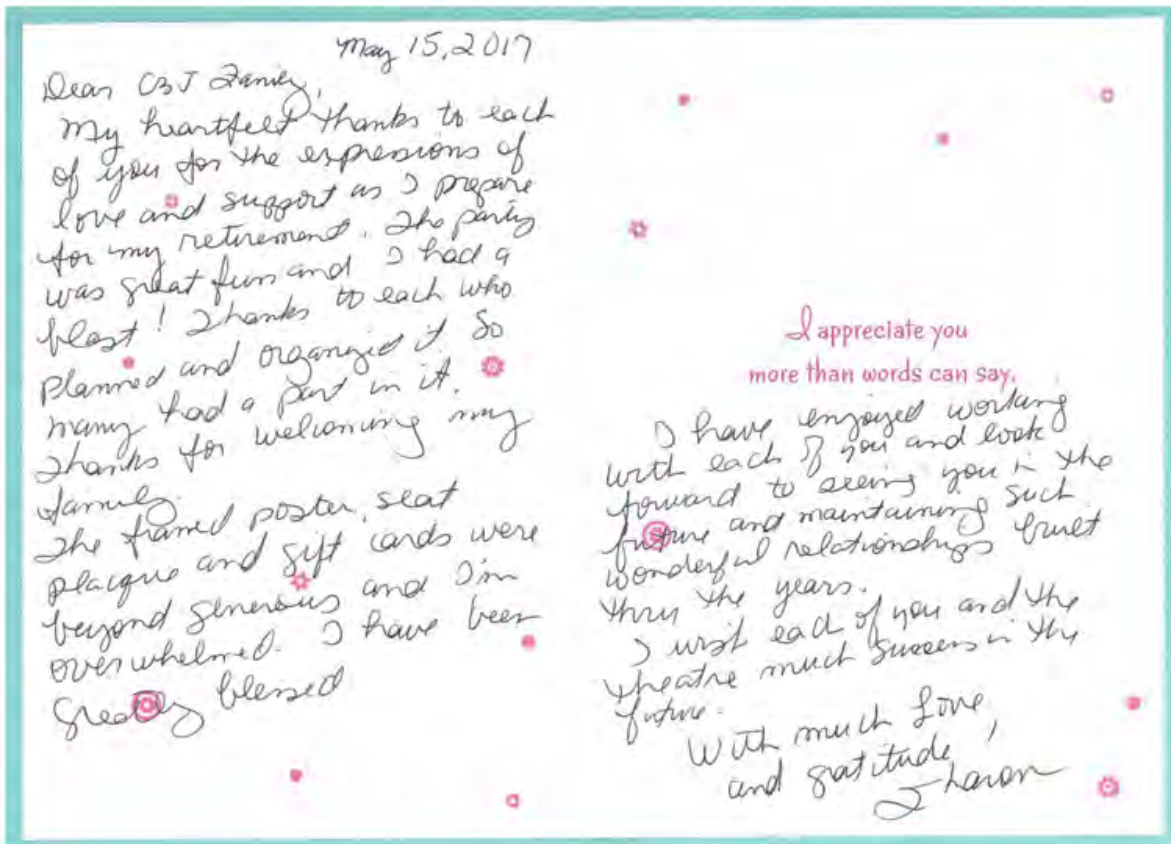 May 15, 2017
Dear CBT Family,
My heartfelt thanks to each
of you for the expressions of
love and support as I prepare
for my retirement. The party
was great fun and I had a
blast! Thanks to each who
planned and organized it. So
many had a part in it.
Thanks for welcoming my
family.
The framed poster, seat
placque and gift cards were
beyond generous and I'm
overwhelmed. I have been
greatly blessed
I appreciate you
more than words can say.
I have enjoyed working
with each of you and look
forward to seeing you in the
future and maintaining such
wonderful relationships built
thru the years.
I wish each of you and the
theatre much success in the
future.
With much love,
and gratitude
Sharon